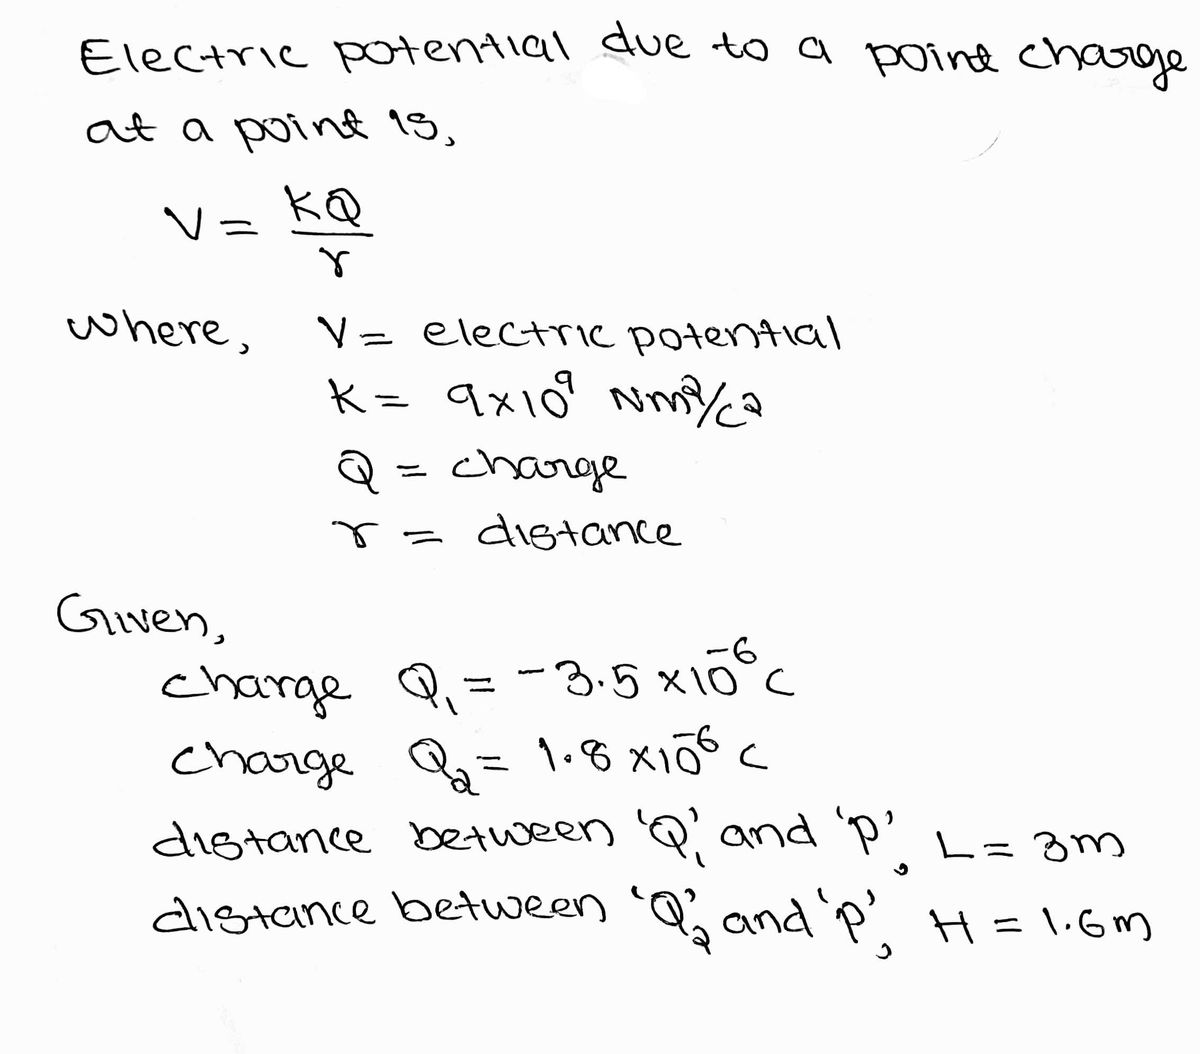 Electric potential due to a point charge
at a point is,
V = KQ/r
where, V = electric potential
K = 9×10⁹ Nm²/C²
Q = charge
r = distance
Given,
charge Q₁ = -3.5 ×10⁻⁶ C
charge Q₂ = 1.8 ×10⁻⁶ C
distance between 'Q₁' and 'p', L = 3m
distance between 'Q₂' and 'p', H = 1.6m